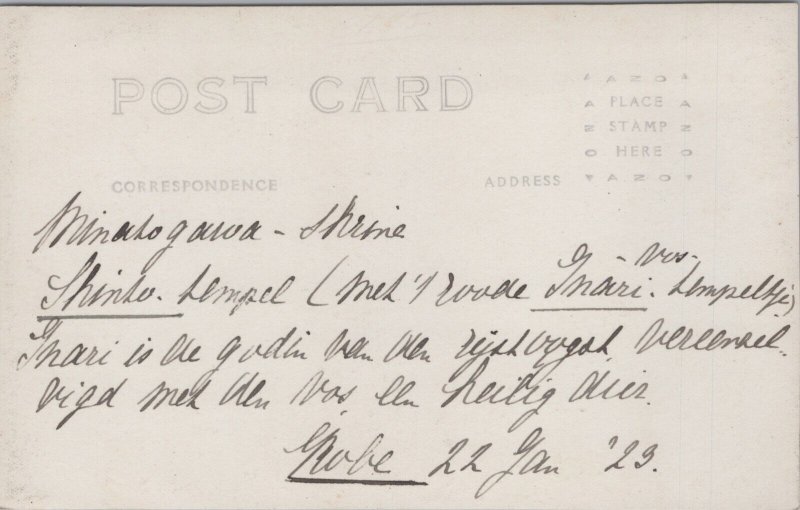 POST CARD
AZO
A PLACE A
Z STAMP Z
O HERE O
AZO
CORRESPONDENCE
ADDRESS
Minatogawa - Shrine
- vos-
Shinto. tempel (met '1 roode Inari. tempeltje)
Inari is de godin van den rijstoogst, vereenzel-
vigd met den vos, een heilig dier.
Kobe 22 Jan '23.